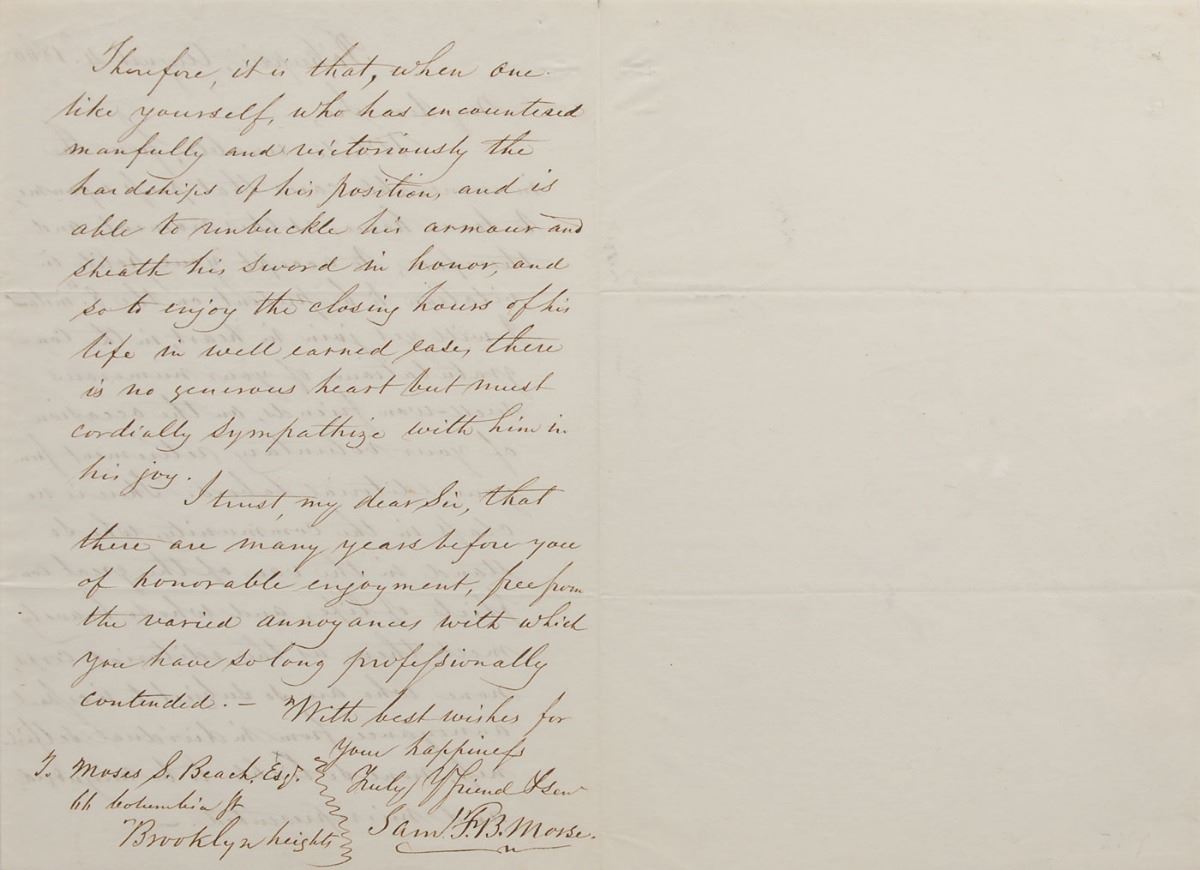 Therefore, it is that, when one
like yourself, who has encountered
manfully and victoriously the
hardships of his position, and is
able to unbuckle his armour and
sheath his sword in honor, and
so to enjoy the closing hours of his
life in well earned ease, there
is no generous heart but must
cordially sympathize with him in
his joy.
I trust, my dear Sir, that
there are many years before you
of honorable enjoyment, free from
the varied annoyances with which
you have so long professionally
contended. — With best wishes for
your happiness
Truly Yr friend & serv
Saml. F. B. Morse.
To Moses S. Beach, Esqr.
66 Columbia St
Brooklyn heights